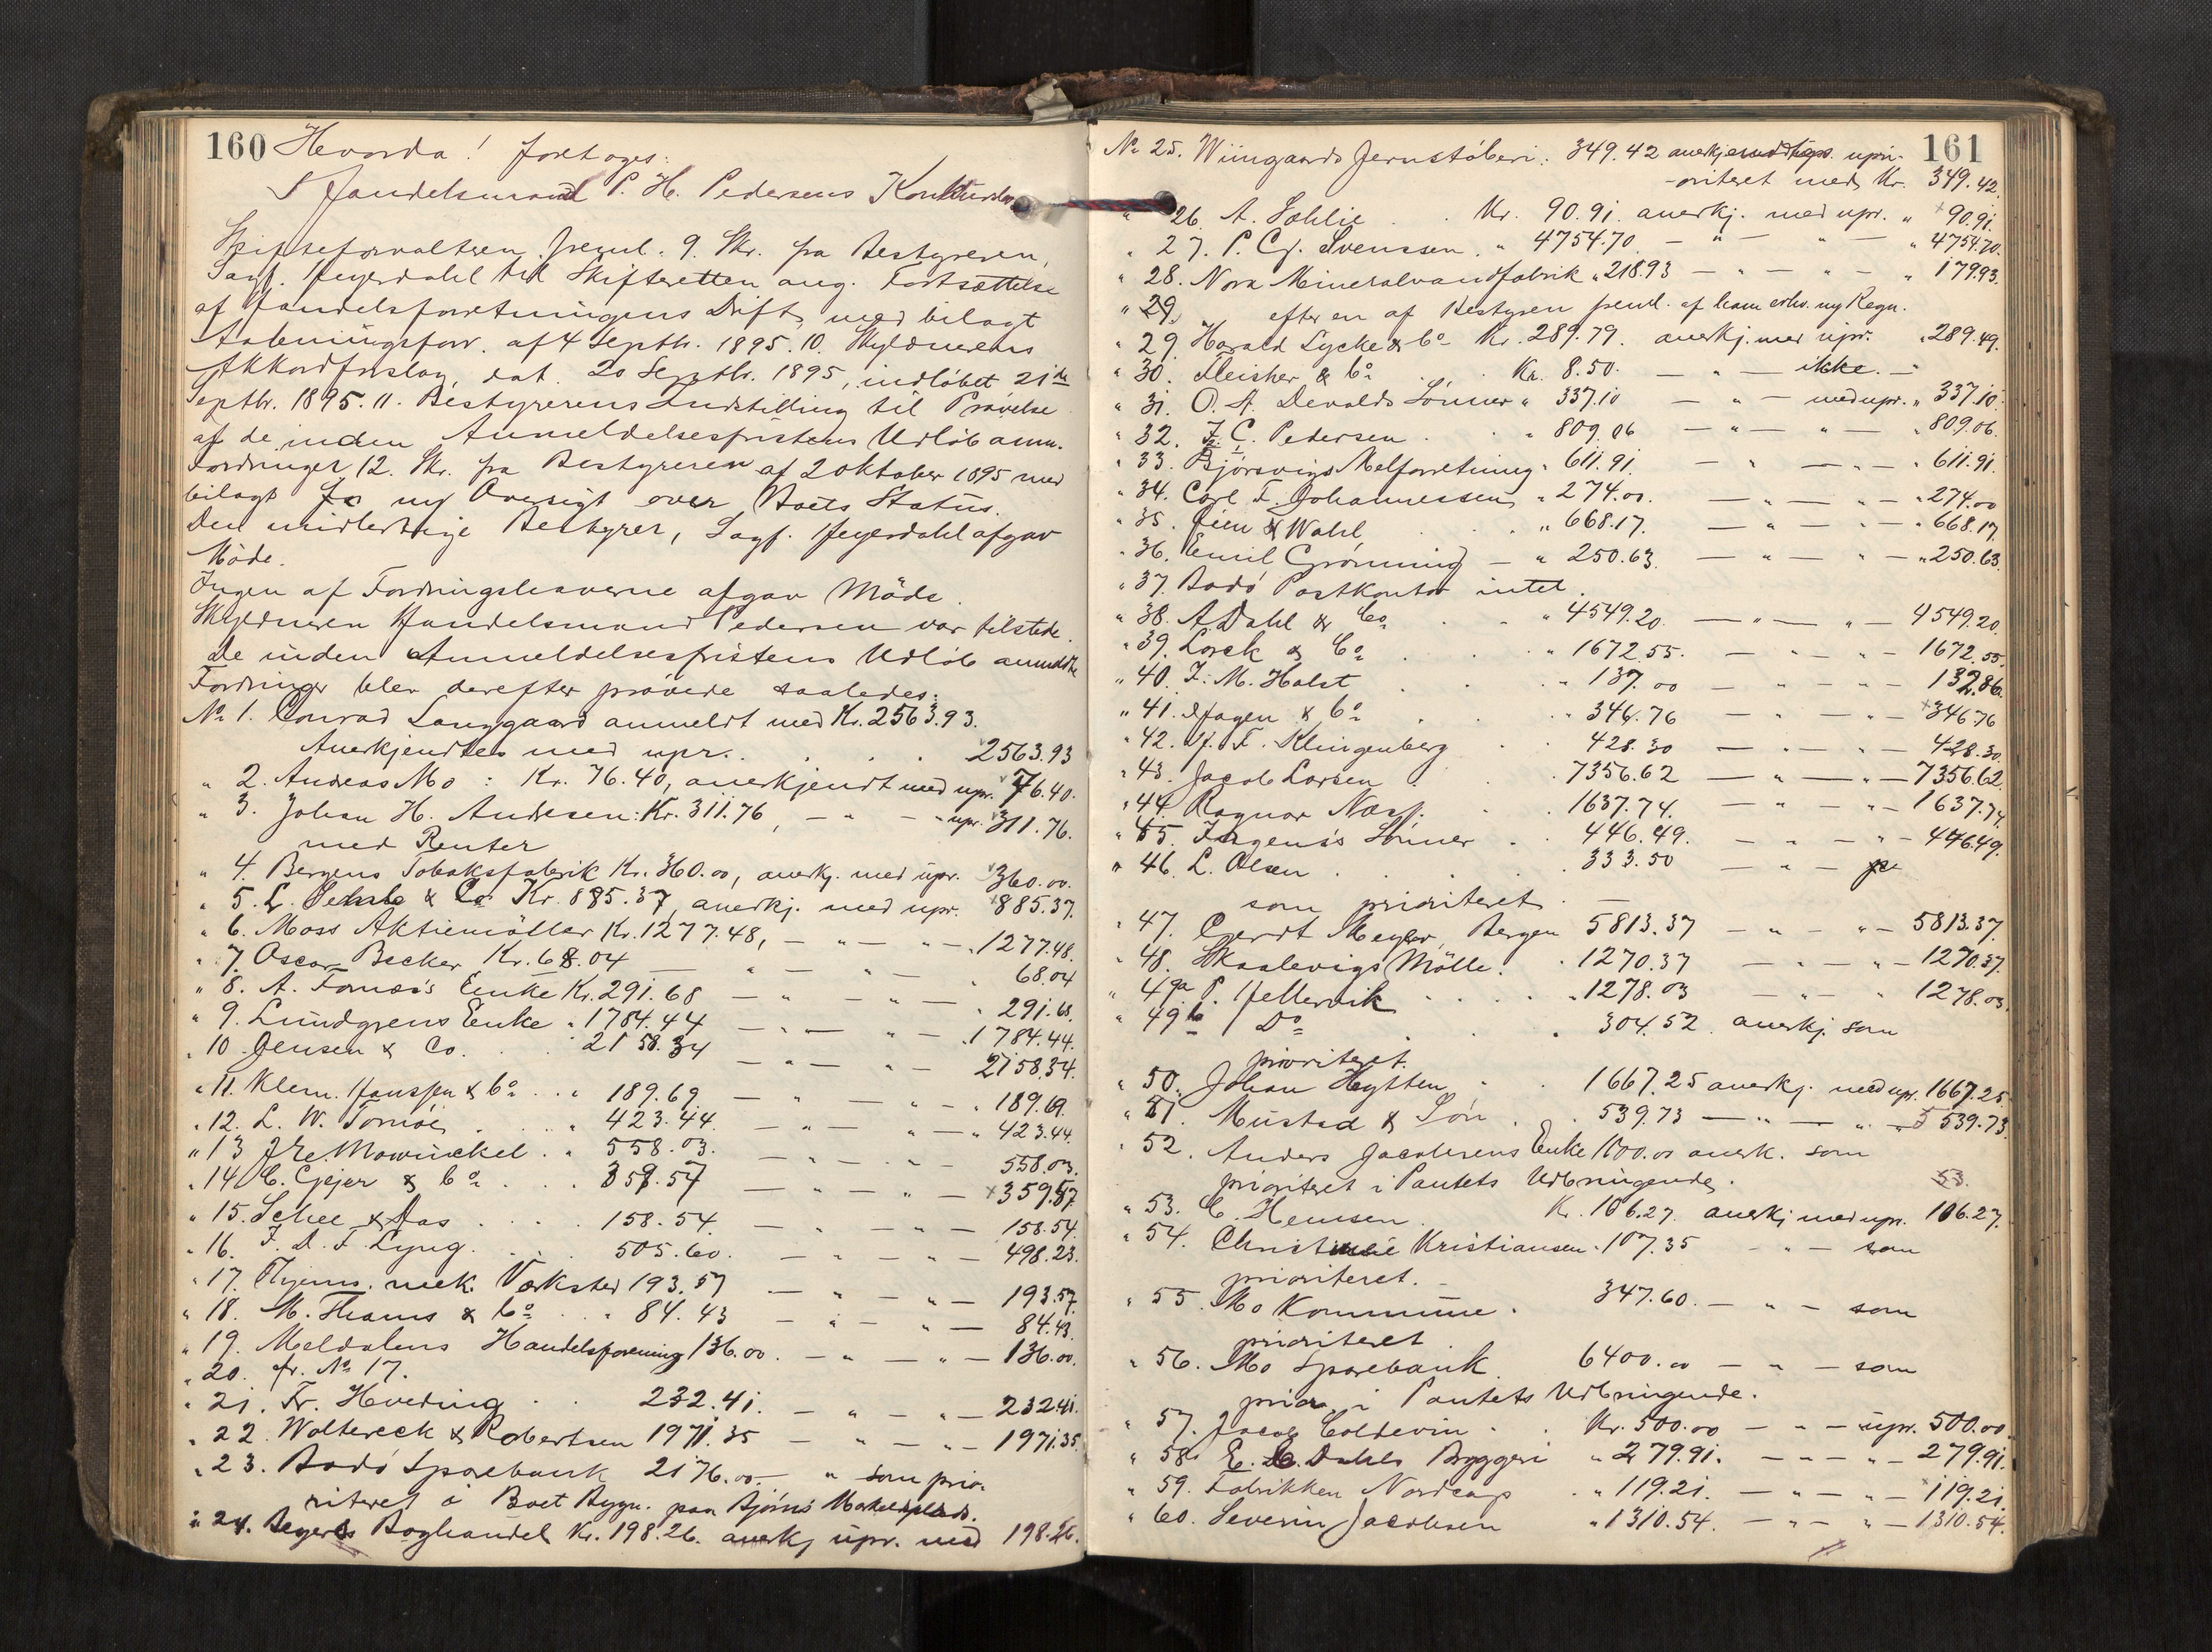 160 Hvorda! foretoges:
I Handelsmand P. H. Pedersens Konkursbo
Skifteforvalteren freml. 9. Skr. fra Bestyreren,
Sagf. Heyerdahl til Skifteretten ang. Fortsættelse
af Handelsforretningens Drift, med bilagt
Aabningsforr. af 4 Septbr. 1895. 10. Skyldnerens
Akkordforslag, dat. 20 Septbr. 1895, indløbet 21de
Septbr. 1895. 11. Bestyrerens Indstilling til Prøvelse
af de inden Anmeldelsesfristens Udløb anm.
Fordringer, 12. Skr. fra Bestyreren af 2 Oktober 1895 med
bilagt ny Oversigt over Boets Status.
Den midlertidige Bestyrer, Sagf. Heyerdahl afgav
Møde.
Ingen af Fordringshaverne afgav Møde.
Skyldneren Handelsmand Pedersen var tilstede.
De inden Anmeldelsesfristens Udløb anmeldte
Fordringer blev derefter prøvede saaledes:
No 1. Conrad Langgaard anmeldt med Kr. 2563.93.
Anerkjendtes med upr. . . . 2563.93
" 2. Andreas Mo : Kr. 76.40, anerkjendt med upr. 76.40.
" 3. Johan H. Andresen: Kr. 311.76, — " — upr. 311.76.
med Renter
" 4. Bergens Tobaksfabrik Kr. 360.00, anerkj. med upr. 360.00.
" 5. L. & Co Kr. 885.37, anerkj. med upr. 885.37.
" 6. Moss Aktiemöller Kr. 1277.48, — " — " — 1277.48.
" 7. Oscar Becker Kr. 68.04 — " — " — 68.04
" 8. A. Tornøs's Enke Kr. 291.68 — " — " — 291.68.
" 9. Lundgrens Enke " 1784.44 — " — " — 1784.44.
" 10. Jensen & Co. . . 2158.34 — " — " — 2158.34.
" 11. Klem. Hanssen & Co . . " 189.69 — " — " — " 189.69.
" 12. L. W. Tornöe . . . " 423.44. — " — " — " 423.44.
" 13 J. E. Mowinckel . " 558.03. — " — " — 558.03.
" 14 C. Gejer & Co . . . 359.57 — " — " — 359.57
" 15. Schee & Aas . . . . 158.54. — " — " — 158.54.
" 16. F. D. F. Lyng. . . . 505.60. — " — " — 498.23.
" 17. Thjems. mek. Værksted 193.57 — " — " — 193.57.
" 18. M. Thams & Co . . " 84.43 — " — " — 84.43.
" 19. Meldalens Handelsforening 136.00. — " — " — 136.00.
" 20. fr. No 17.
" 21. Fr. Hveding . . 232.41. — " — " — 232.41.
" 22. Woltereck & Robertson 1971.35 — " — " — 1971.35.
" 23. Bodö Sparebank 2176.00. — " som prio-
riteret i Boet Bygn. paa Bjørns Markedsplads.
" 24. Beyers Boghandel Kr. 198.26. anerkj upr. med 198.26.
161
No 25. Wiingaards Jernstøberi: 349.42 anerkjendtes upri-
-oriteret med Kr. 349.42.
" 26. A. Sohlie . . Kr. 90.91. anerkj. med upr. " 90.91.
" 27. P. Cj. Svenssen. " 4754.70 — " — " — " 4754.70.
" 28. Nora Mineralvandfabrik " 218.93 — " — " — " 179.93.
" 29. efter en af Bestyren freml. af ham erhv. ny Regn.
" 29. Harald Lycke & Co Kr. 289.79. anerkj. med upr. " 289.49.
" 30. Fleisher & Co . . Kr. 8.50. — " — ikke. —
" 31. O. A. Devolds Sønner " 337.10 — " — med upr. " 337.10.
" 32. F. C. Pedersen . . " 809.06 — " — " — " 809.06.
" 33. Bjørsvigs Melforretning " 611.91. — " — " — " 611.91.
" 34. Carl F. Johannessen " 274.00. — " — " — " 274.00
" 35. Jien & Wahl . . " 668.17. — " — " — " 668.17.
" 36. Emil Grönning — " 250.63. — " — " — " 250.63.
" 37. Bodö Postkontor intet.
" 38. A Dahl & Co . . " 4549.20. — " — " — 4549.20.
" 39. Lorck & Co . . . " 1672.55. — " — " — 1672.55.
" 40. F. M. Holst . . . " 137.00 — " — " — 132.86.
" 41. Hagen & Co . . . " 346.76 — " — " — 346.76
" 42. H. F. Klingenberg . . 428.30 — " — " — 428.30.
" 43. Jacob Larsen . . . 7356.62 — " — " — 7356.62.
" 44. Ragnar Næss. . . 1637.74. — " — " — 1637.74.
" 45. Sönner . . 446.49. — " — " — 446.49.
" 46. L. Olsen . . . . 333.50 — " —
som prioriteret. —
" 47. Gerdt Meyer, Bergen 5813.37 — " — " — 5813.37.
" 48. Skaalevigs Mölle. . 1270.37 — " — " — 1270.37.
" 49a P. Hellervik . . . . 1278.03 — " — " 1278.03.
" 49b Do . . . 304.52. anerkj. som
prioriteret.
" 50. Johan Hytten . . 1667.25 anerkj. med upr. 1667.25
" 51. Mustad & Sön . . 539.73 — " — " — 539.73.
" 52. Anders Jacobsens Enke 1600.00 anerk. som
prioriteret i Pantets Udbringende. 53.
" 53. C. Hemsen . Kr. 106.27. anerkj med upr. 106.27.
" 54. Kristiansen . 107.35 — " — som
prioriteret. —
" 55. Mo Kommune . 347.60. — " — som
prioriteret
" 56. Mo Sparebank 6400.00 — " — som
prior. i Pantets Udbringende.
" 57. Jacob Coldevin . . Kr. 500.00 — " — upr. 500.00.
" 58. E. C. Dahls Bryggeri " 279.91. — " — " — 279.91.
" 59. Fabrikken Nordcap . " 119.21. — " — " — 119.21.
" 60. Severin Jacobsen " 1310.54. — " — " — 1310.54.